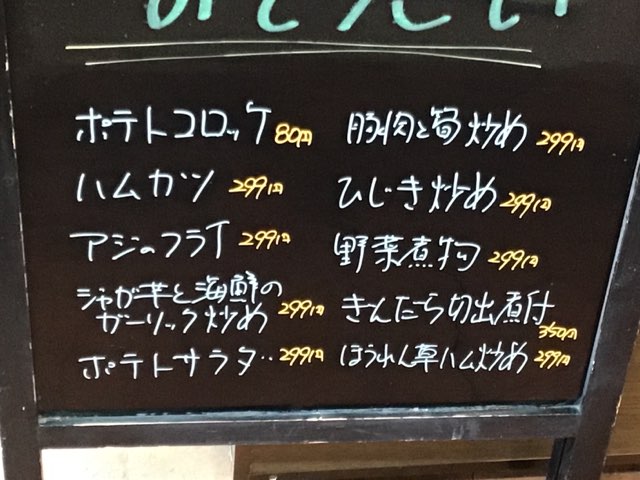 ポテトコロッケ 80円
ハムカツ 299円
アジのフライ 299円
ジャガ芋と海鮮の
ガーリック炒め 299円
ポテトサラダ‥299円
豚肉と筍炒め 299円
ひじき炒め 299円
野菜煮物 299円
きんだら切出煮付
350円
ほうれん草ハム炒め 299円